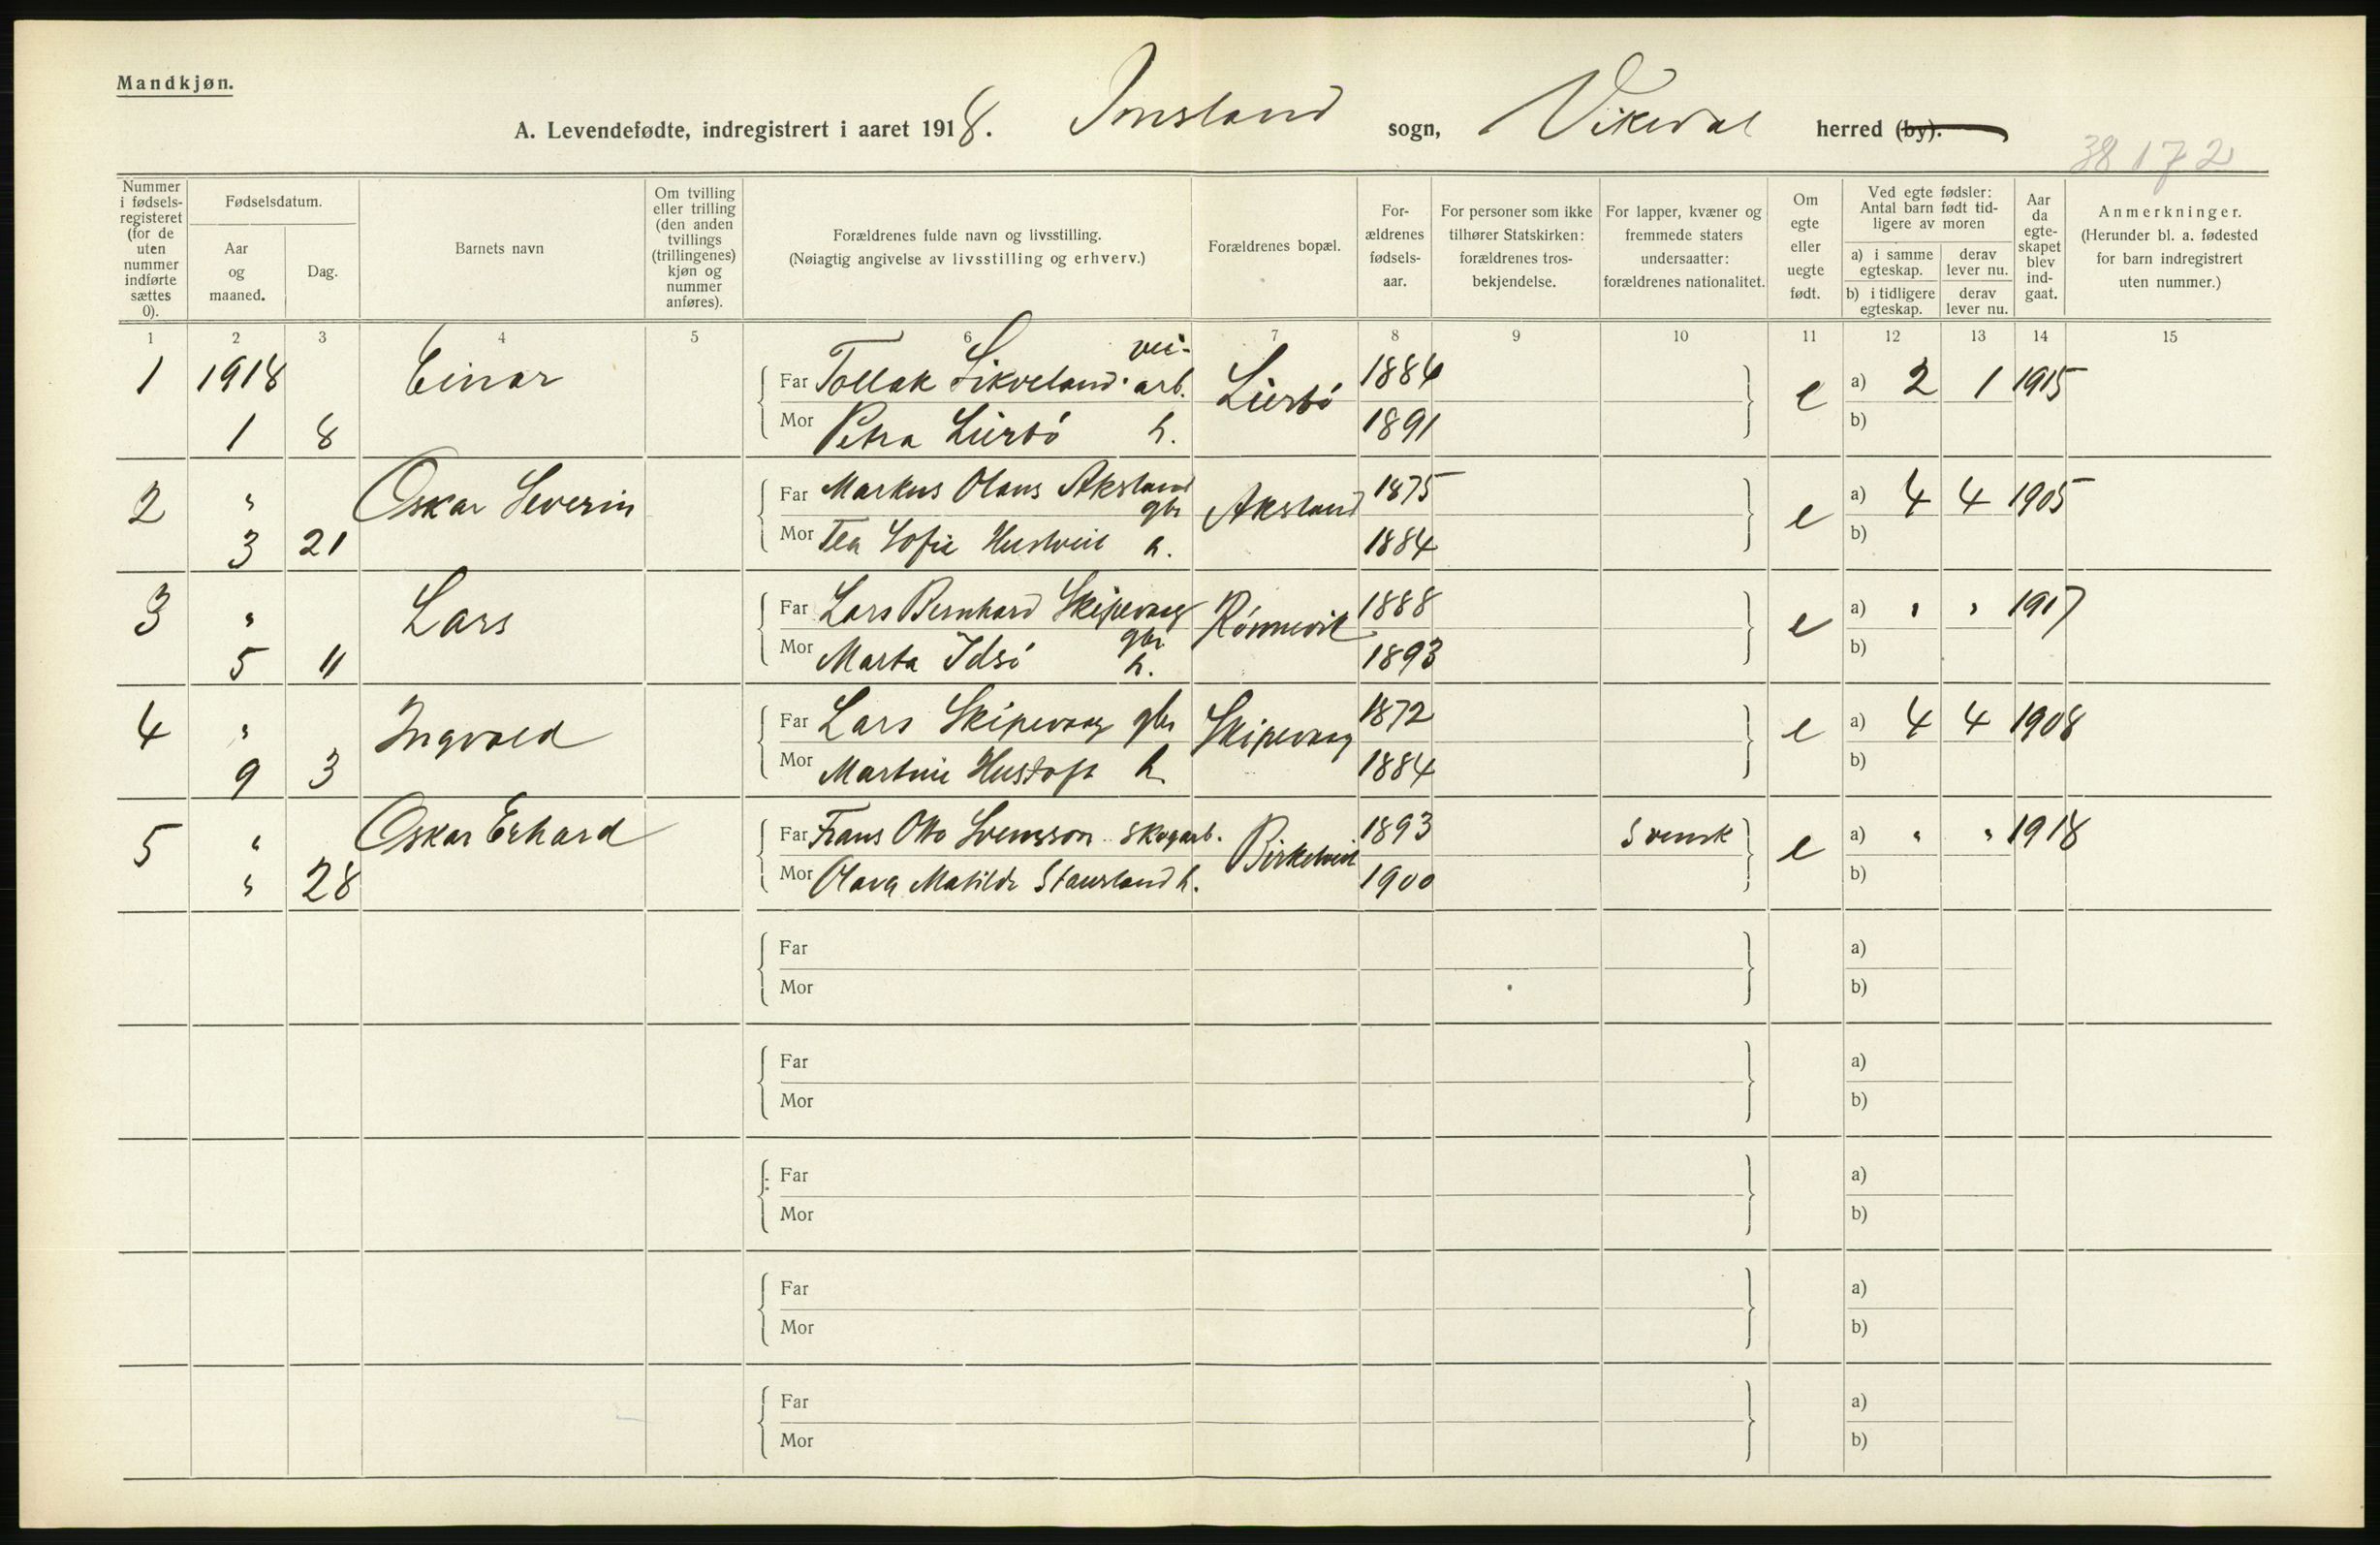 Mandkjøn.
A. Levendefødte, indregistrert i aaret 1918. Imsland sogn, Vikedal herred (by).
38172
Nummer i fødsels-registeret (for de uten nummer indførte sættes 0).
Fødselsdatum.
Aar og maaned.
Dag.
Barnets navn
Om tvilling eller trilling (den anden tvillings (trillingenes) kjøn og nummer anføres).
Forældrenes fulde navn og livsstilling.
(Nøiagtig angivelse av livsstilling og erhverv.)
Forældrenes bopæl.
For-ældrenes fødsels-aar.
For personer som ikke tilhører Statskirken: forældrenes tros-bekjendelse.
For lapper, kvæner og fremmede staters undersaatter: forældrenes nationalitet.
Om egte eller uegte født.
Ved egte fødsler: Antal barn født tid-ligere av moren
a) i samme egteskap.
derav lever nu.
b) i tidligere egteskap.
derav lever nu.
Aar da egte-skapet blev ind-gaat.
Anmerkninger.
(Herunder bl. a. fødested for barn indregistrert uten nummer.)
1 2 3 4 5 6 7 8 9 10 11 12 13 14 15
1 1918 Einar Far Tollak Sikveland vei-arb. 1884 e a) 2 1 1915
1 8 Mor Petra h. 1891 b)
2 " Oskar Severin Far Markus Olaus Aksland gbr Aksland 1875 e a) 4 4 1905
3 21 Mor Tea Sofie h. 1884 b)
3 " Lars Far Lars Bernhard Skipevaag gbr Rønnevik 1888 e a) " " 1917
5 11 Mor Marta Idsø h. 1893 b)
4 " Ingvald Far Lars Skipevaag gbr Skipevaag 1872 e a) 4 4 1908
9 3 Mor Martine Hustoft h. 1884 b)
5 " Oskar Erhard Far Frans Otto Svensson skogarb. 1893 Svensk e a) " " 1918
" 28 Mor Olava Matilde Staursland h. 1900 b)
Far a)
Mor b)
Far a)
Mor b)
Far a)
Mor b)
Far a)
Mor b)
Far a)
Mor b)